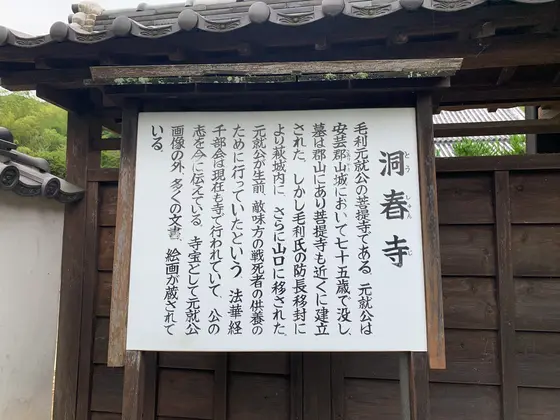 洞春寺
とうしゅんじ
毛利元就公の菩提寺である。元就公は
安芸郡山城において七十五歳で没し、
墓は郡山にあり菩提寺も近くに建立
された。しかし毛利氏の防長移封に
より萩城内に、さらに山口に移された。
元就公が生前、敵味方の戦死者の供養の
ために行っていたという、法華経
千部会は現在も寺で行われていて、公の
志を今に伝えている。寺宝として元就公
画像の外、多くの文書、絵画が蔵されて
いる。